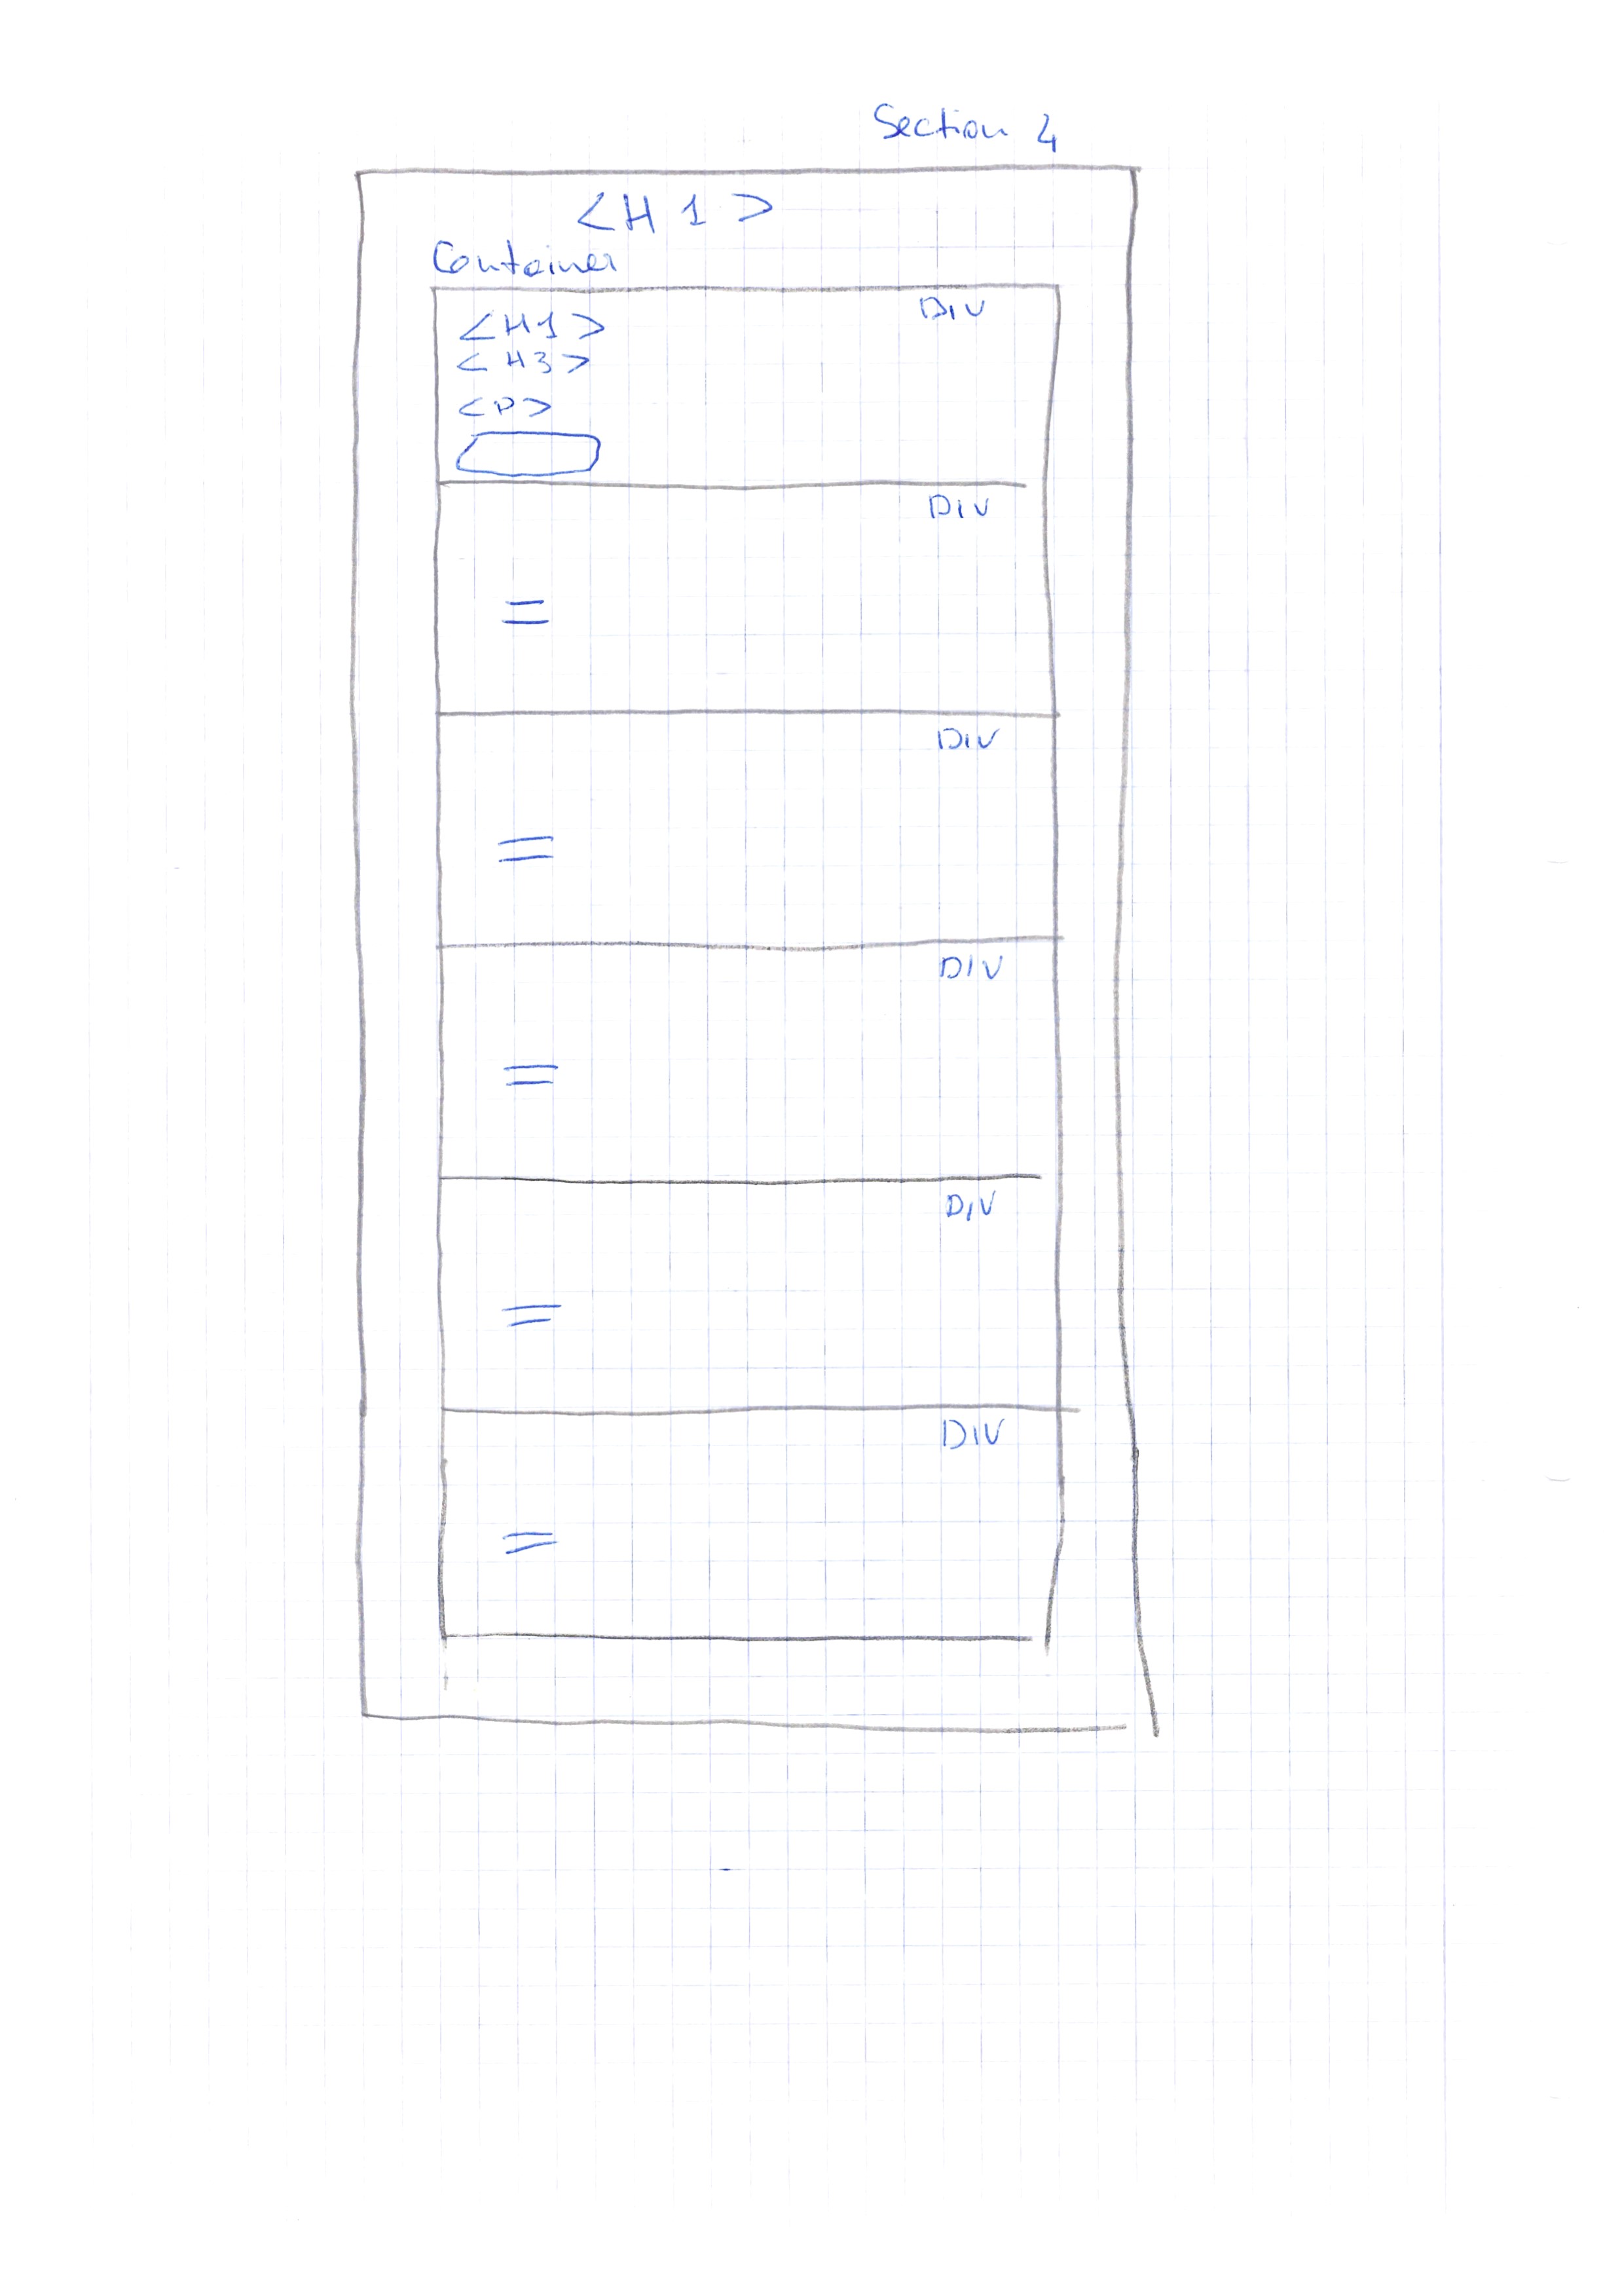 Section 4
<H1>
Container
Div
<H1>
<H3>
<P>
Div
=
Div
=
Div
=
Div
=
Div
=